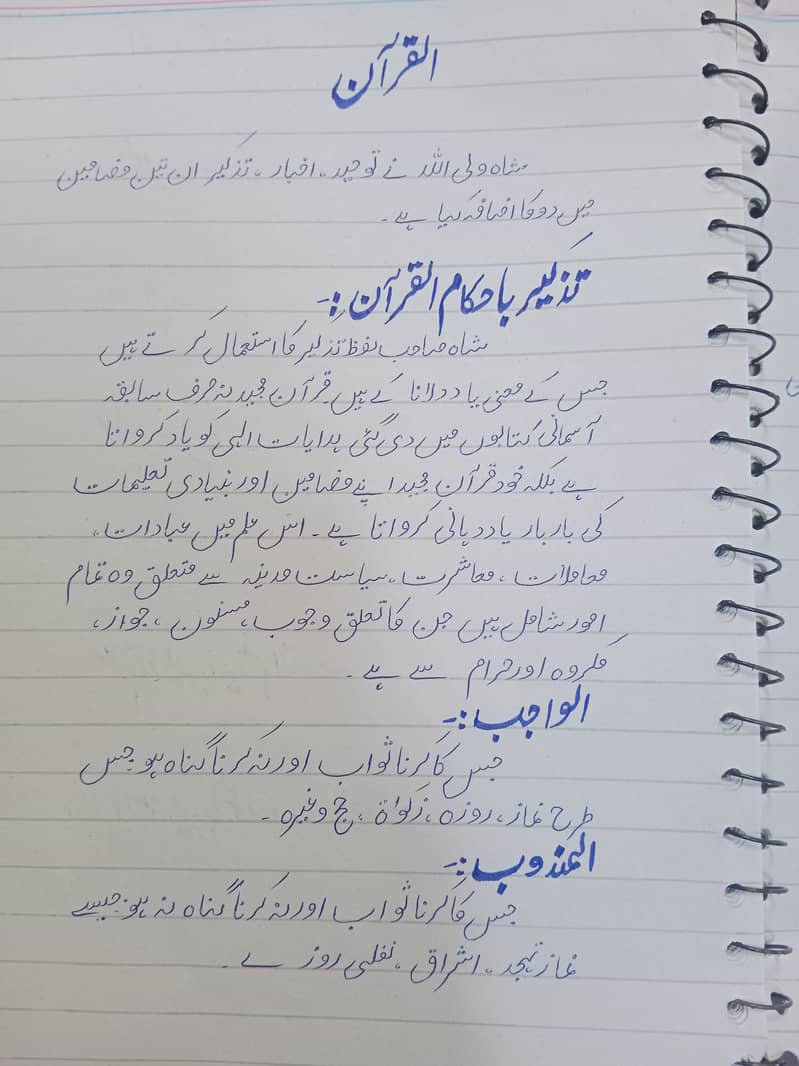 القرآن
شاہ ولی اللہ نے توحید، اخبار، تذکیر ان تین مضامین
میں دو کا اضافہ کیا ہے۔
تذکیر باحکام القرآن:-
شاہ صاحب لفظ تذکیر کا استعمال کرتے ہیں
جس کے معنی یاد دلانا کے ہیں قرآن مجید نہ صرف سابقہ
آسمانی کتابوں میں دی گئی ہدایات الہی کو یاد کرواتا
ہے بلکہ خود قرآن مجید اپنے مضامین اور بنیادی تعلیمات
کی بار بار یاد دہانی کرواتا ہے۔ اس علم میں عبادات،
معاملات، معاشرت، سیاست مدینہ سے متعلق وہ تمام
امور شامل ہیں جن کا تعلق وجوب، مسنون، جواز،
مکروہ اور حرام سے ہے۔
الواجب:-
جس کا کرنا ثواب اور نہ کرنا گناہ ہو جس
طرح نماز، روزہ، زکوٰۃ، حج وغیرہ۔
المندوب:-
جس کا کرنا ثواب اور نہ کرنا گناہ نہ ہو جیسے
نماز تہجد، اشراق، نفلی روزے۔